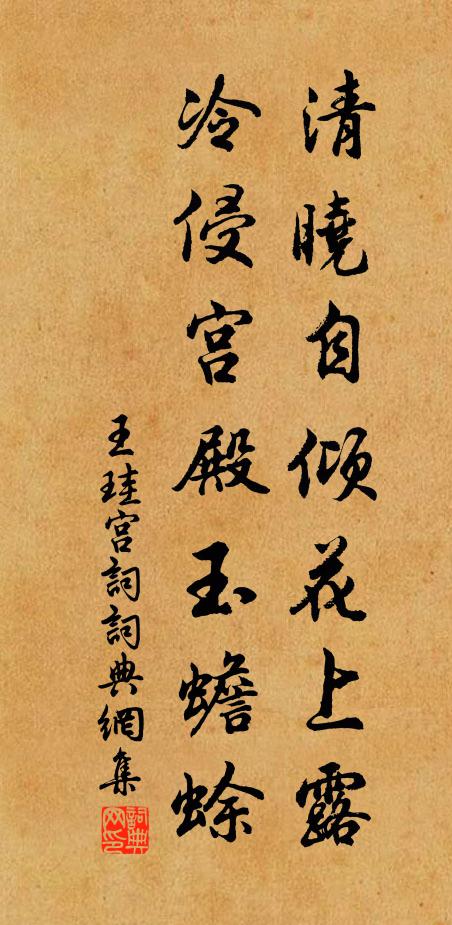 清曉自傾花上露
冷侵宮殿玉蟾蜍
王珪宮詞詞典網集
詞典网印